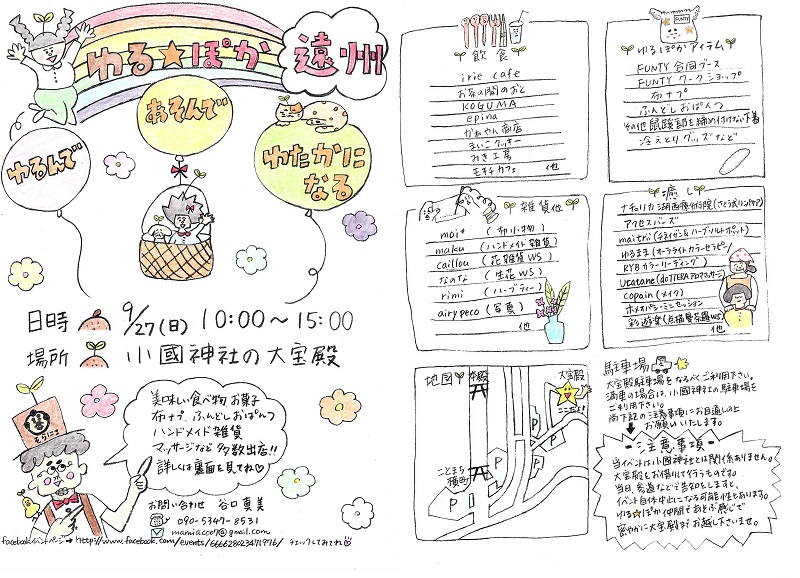 ゆる★ぽか 遠州
ゆるんで
あそんで
ゆたかに
なる
日時 9/27(日) 10:00〜15:00
場所 小國神社の大宝殿
美味しい食べ物 お菓子
布ナプ、ふんどしおぱんつ
ハンドメイド雑貨
マッサージなど 多数出店!!
詳しくは裏面を見てね♡
お問い合わせ 谷口真美
090-5347-8531
mamiacco7@gmail.com
facebookイベントページ→ http://www.facebook.com/events/666628023471976/ チェックしてみてね
飲食
irie cafe
お茶の間のおと
KOGUMA
epina
かねやん商店
まいこクッキー
みき工房
モキチカフェ 他
ゆるぽかアイテム
FUNTY
FUNTY 合同ブース
FUNTY ワークショップ
布ナプ
ふんどしおぱんつ
その他 鼠蹊部を締め付けない下着
冷えとりグッズなど
雑貨他
moi* (布小物)
maku (ハンドメイド雑貨)
caillou (花雑貨WS)
なのな (生花WS)
rimi (ハーブティー)
airypeco (写真)
他
癒し
アクセスバーズ
maitrii (チネイザン&ハーブソルトポット)
ゆるまま (オーラライトカラーセラピー)
RYB カラーリーディング
ucatane (doTERRAアロマタッチ)
copain (メイク)
ホメオパシーミニセッション
他
地図
本殿
大宝殿
ここだよ!
ことまち横町
P
P
P
P
P
駐車場
大宝殿駐車場をなるべくご利用下さい。
満車の場合は、小國神社の駐車場を
ご利用下さい。
尚下記の注意事項にお目通しの上
お願いいたします。
-注意事項-
当イベントは小國神社とは関係ありません。
大宝殿をお借りして行うものです。
当日、参道などで告知をしますと、
イベント自体中止になる可能性もあります。
ゆる★ぽか仲間であそぶ感じで
密やかに大宝殿までお越し下さいませ。